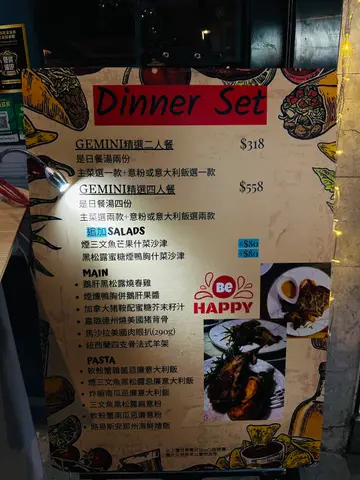 Dinner Set
GEMINI精選二人餐 $318
是日餐湯兩份
主菜選一款+意粉或意大利飯選一款
GEMINI精選四人餐 $558
是日餐湯四份
主菜選兩款+意粉或意大利飯選兩款
追加SALADS
煙三文魚芒果什菜沙津 +$80
黑松露蜜糖煙鴨胸什菜沙津 +$80
MAIN
• 鵝肝黑松露燒春雞
• 煙燻鴨胸併鵝肝果醬
• 加拿大豬鞍配蜜糖芥末籽汁
• 嘉敬德州燒美國豬肯骨
• 馬沙拉美國肉眼扒(290g)
• 紐西蘭四支骨法式羊架
Be
HAPPY
PASTA
• 軟殼蟹龍蝦忌廉意大利飯
• 煙三文魚黑松露忌廉意大利飯
• 炸蝦南瓜忌廉意大利飯
• 三文魚黑松露扁意粉
• 軟殼蟹南瓜忌廉意粉
• 路易斯安那州海鮮燴飯